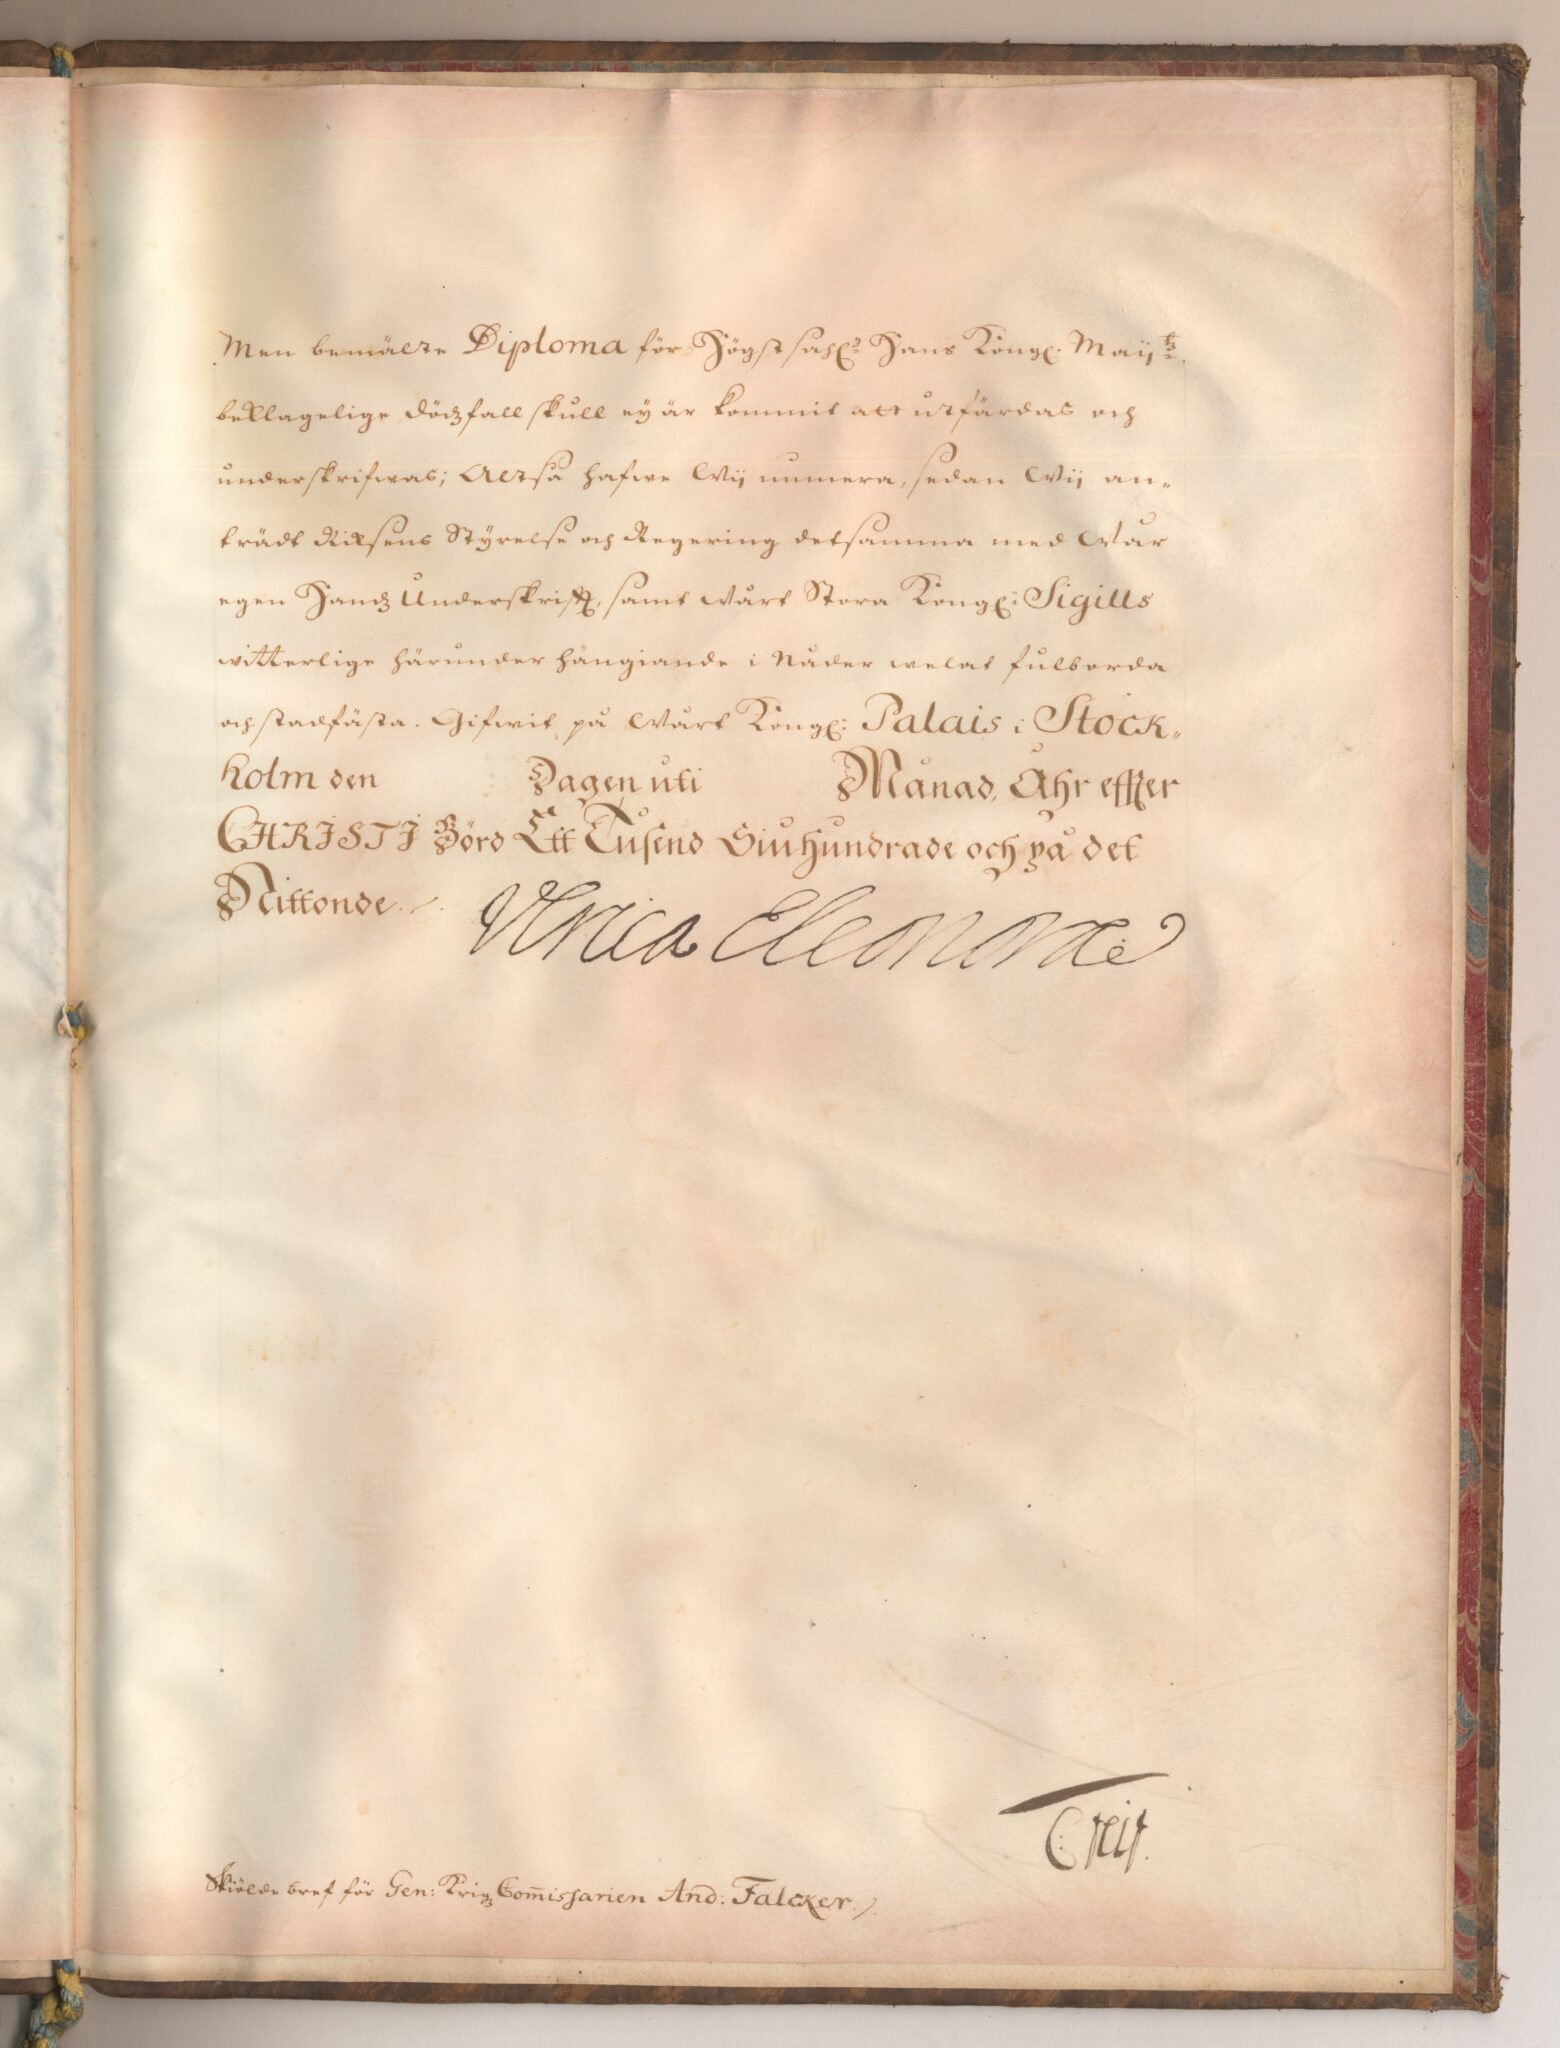 Men bemälte Diploma för Högstsahl: Hans Kongl. Maij:tz
beklagelige dödzfall skull eij är kommit att utfärdas och
underskrifwas; Altså hafwe Wij numera, sedan Wij an-
trädt Riksens Styrelse och Regering detsamma med Wår
egen Handz Underskrifft, samt wårt Stora Kongl: Sigills
witterlige härunder hängiande i Nåder welat fulborda
och stadfästa. Gifwit på Wårt Kongl: Palais i Stock-
holm den Dagen uti Månad, Åhr effter
CHRISTI Börd Ett Tusend Siuhundrade och på det
Nittonde.
Ulrica Eleonora
Skiölde bref för Gen: Krigz Commissarien And: Falcker.